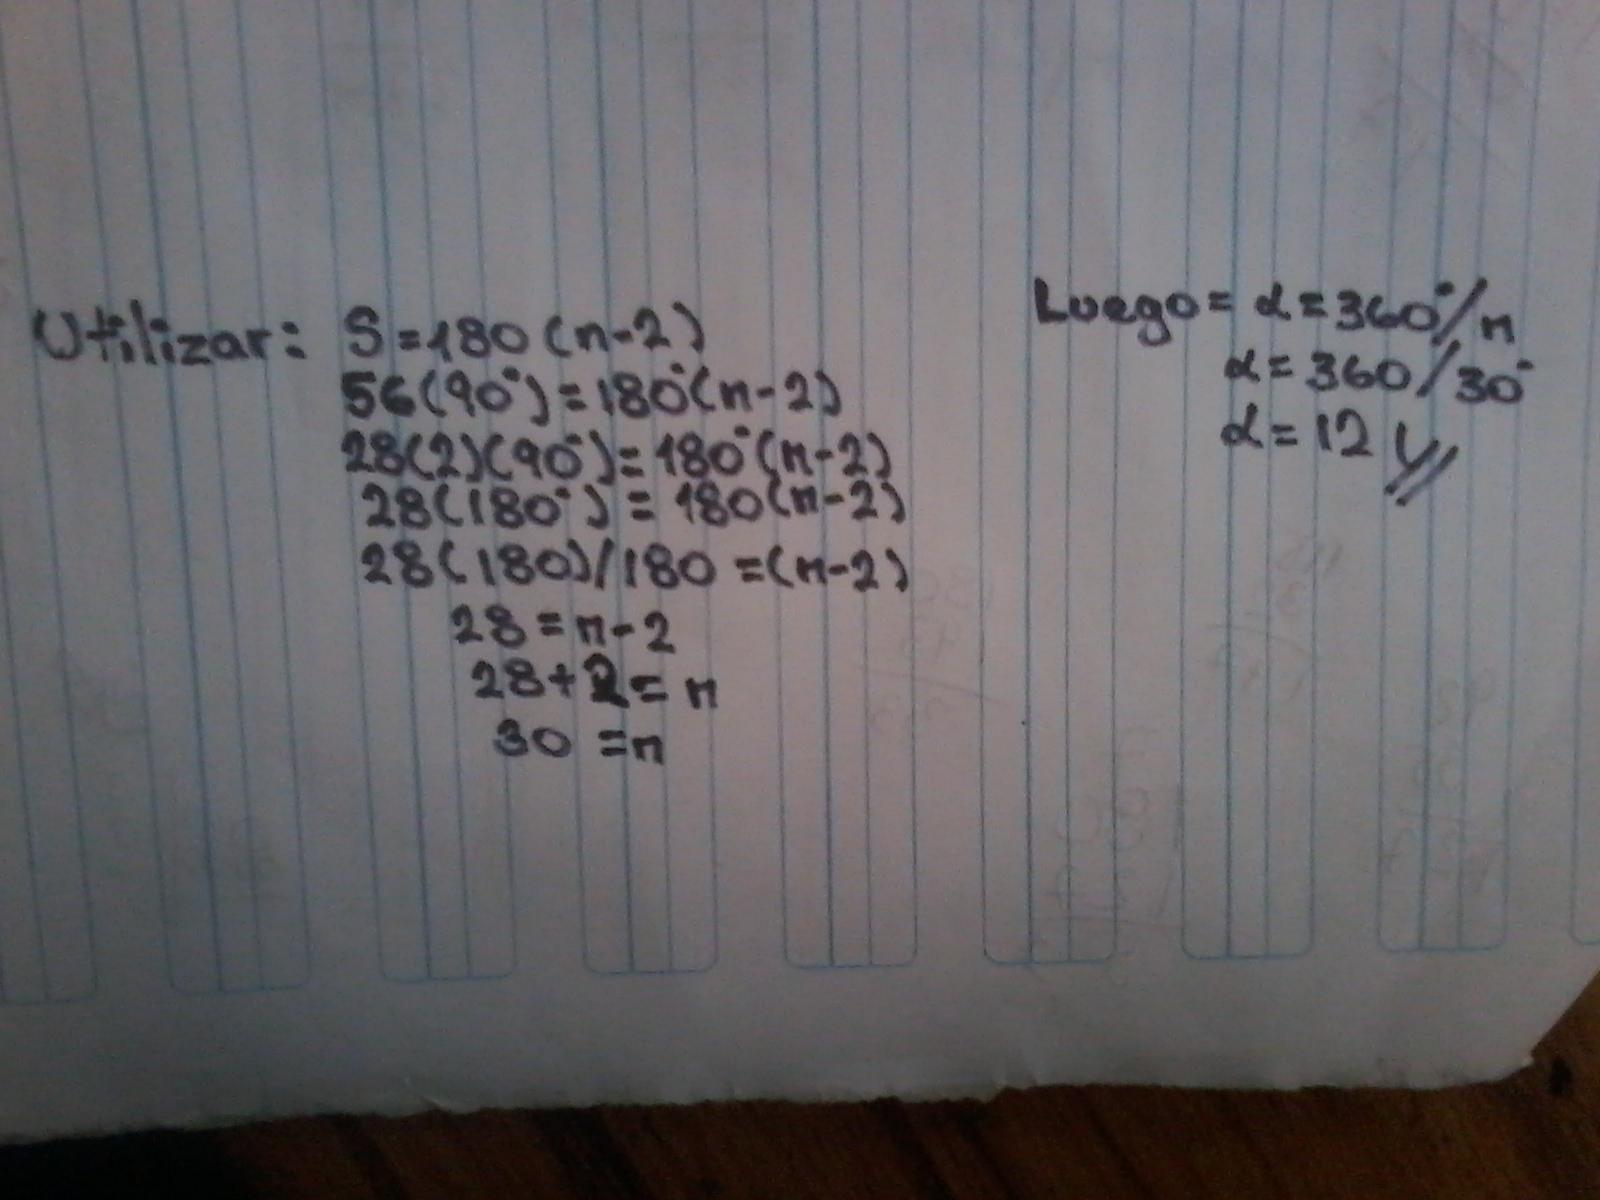 Utilizar: S=180(n-2)
56(90°)=180°(n-2)
28(2)(90°)=180°(n-2)
28(180°)=180(n-2)
28(180)/180=(n-2)
28=n-2
28+2=n
30=n
Luego= α=360°/n
α=360/30°
α=12